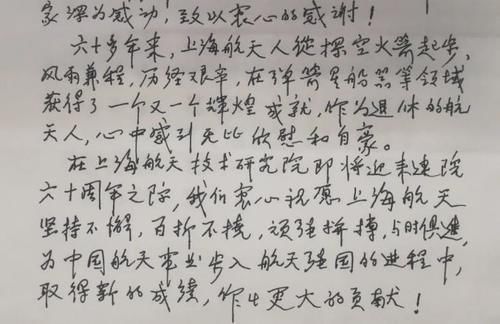 家深为感动，致以衷心的感谢！
六十多年来，上海航天人從探空火箭起步，
风雨兼程，历经艰辛，在弹箭星船器等领域
获得了一个又一个辉煌成就，作为退休的航
天人，心中感到无比欣慰和自豪。
在上海航天技术研究院即将迎来建院
六十周年之际，我们衷心祝愿上海航天
坚持不懈，百折不挠，顽强拼搏，与时俱进，
为中国航天事业步入航天强国的进程中，
取得新的成绩，作出更大的贡献！